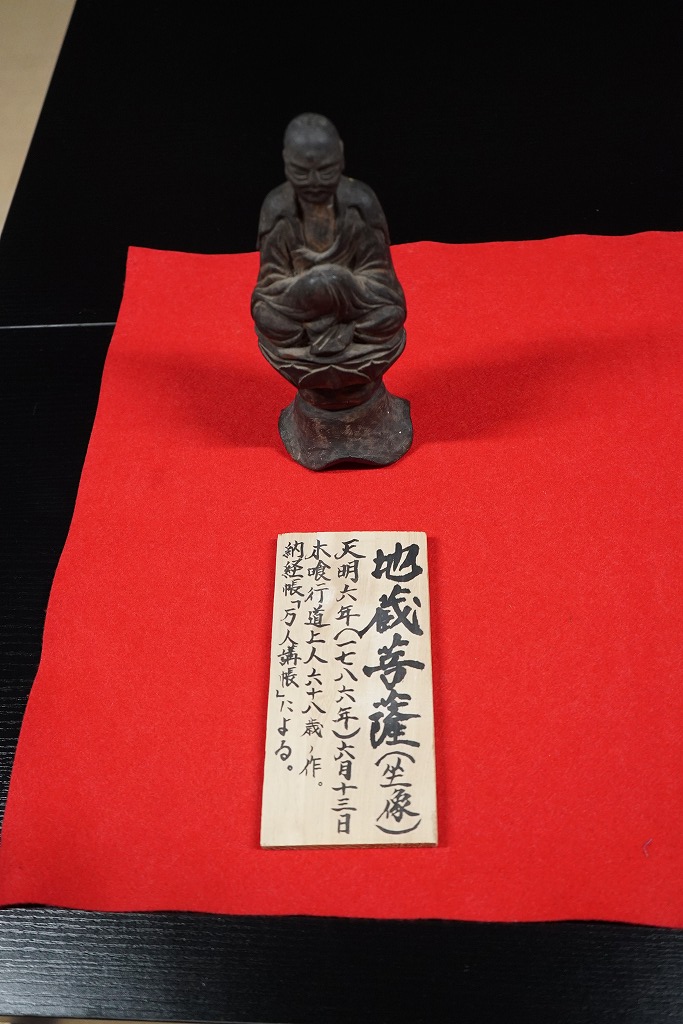 地蔵菩薩(坐像)
天明六年(一七八六年)六月十三日
木喰行道上人六十八歳ノ作。
納経帳「万人講帳」による。